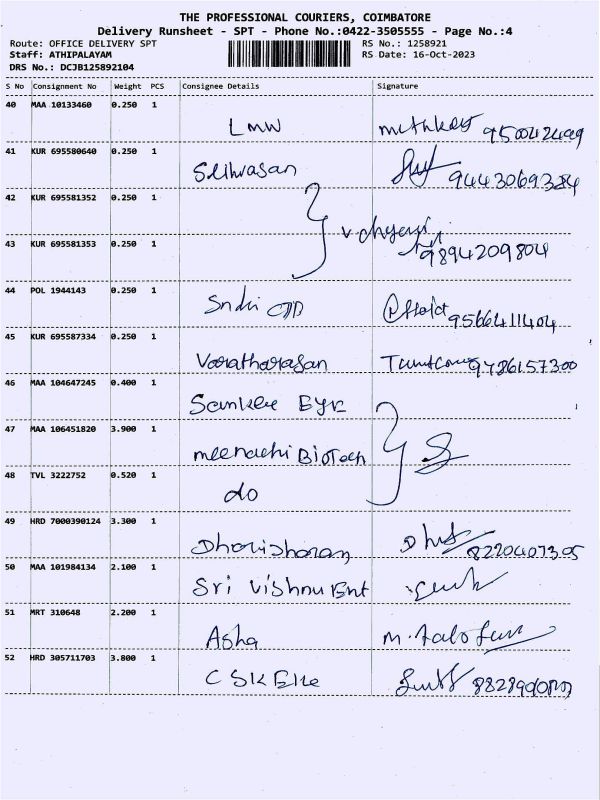 THE PROFESSIONAL COURIERS, COIMBATORE
Delivery Runsheet - SPT - Phone No.:0422-3505555 - Page No.:4
Route: OFFICE DELIVERY SPT RS No.: 1258921
Staff: ATHIPALAYAM RS Date: 16-Oct-2023
DRS No.: DCJB125892104
S No Consignment No Weight PCS Consignee Details Signature
40 MAA 10133460 0.250 1 LMW
41 KUR 695580640 0.250 1 9443069384
42 KUR 695581352 0.250 1
43 KUR 695581353 0.250 1 9894209804
44 POL 1944143 0.250 1 9566411404
45 KUR 695587334 0.250 1 Varatharasan 9786157300
46 MAA 104647245 0.400 1
47 MAA 106451820 3.900 1 meenachi BioTech
48 TVL 3222752 0.520 1 do
49 HRD 7000390124 3.300 1 8220407305
50 MAA 101984134 2.100 1 Sri Vishnu Ent
51 MRT 310648 2.200 1 Asha
52 HRD 305711703 3.800 1 CSK